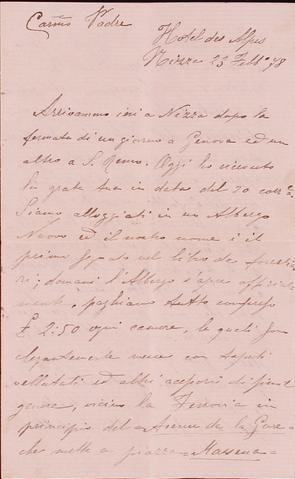 Cariño Padre
Hotel des Alpes
Nizza 23 Febb. 78
Arrivammo ieri a Nizza dopo la
fermata di un giorno a Genova ed un
altro a S. Remo. Oggi ho ricevuto
la grata tua in data del 20 corr.
Siamo alloggiati in un Albergo
Nuovo ed il nostro nome è il
primo nel libro de forestie
ri; domani l'Albergo s'apre
mente, paghiamo tutto compreso
£ 2:50 ogni camera, le quali son
elegantemente con tapeti
vellutati ed altri accessori di
genere, vicino la Ferrovia in
principio del Avenue de la Gare
che mette a piazza Massena